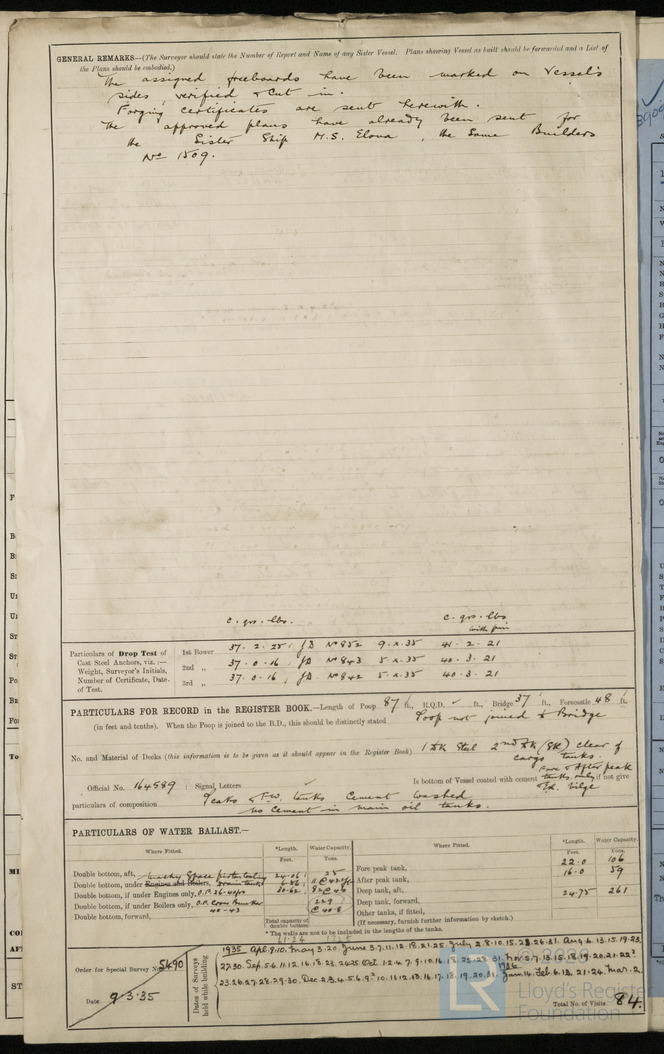 GENERAL REMARKS—(The Surveyor should state the Number of Report and Name of any Sister Vessel. Plans showing Vessel as built should be forwarded and a List of
the Plans should be embodied.)
The assigned freeboards have been marked on Vessel's
sides, verified & Cut in.
Forging certificates are sent herewith.
The approved plans have already been sent for
the Sister Ship M.S. Elona, the Same Builders
No 1509.
c. qrs. lbs. c. qrs. lbs
with pin
Particulars of Drop Test of
Cast Steel Anchors, viz.:—
Weight, Surveyor's Initials,
Number of Certificate, Date
of Test.
1st Bower 37. 2. 25 JD No 852 9. x. 35 41. 2. 21
2nd „ 37. 0. 16 JD No 843 5. x. 35 40. 3. 21
3rd „ 37. 0. 16 JD No 842 5. x. 35 40. 3. 21
PARTICULARS FOR RECORD in the REGISTER BOOK.—Length of Poop 87 ft., R.Q.D. ✓ ft., Bridge 37 ft., Forecastle 48 ft.
(in feet and tenths). When the Poop is joined to the B.D., this should be distinctly stated Poop not joined to Bridge
No. and Material of Decks (this information is to be given as it should appear in the Register Book) 1 Dk Steel 2nd Dk (Stl) clear of
cargo tanks.
Official No. 164589 Signal Letters Is bottom of Vessel coated with cement Fore & After peak tanks only if not give
particulars of composition Peaks & F.W. tanks Cement washed
no Cement in main oil tanks.
PARTICULARS OF WATER BALLAST.—
Where Fitted. *Length. Water Capacity. Where Fitted. *Length. Water Capacity.
Feet. Tons. Feet. Tons.
Double bottom, aft, 24.06 35
Double bottom, under Engines and Boilers,
Double bottom, if under Engines only,
Double bottom, if under Boilers only,
40-43
Double bottom, forward,
Total capacity of double bottom
Fore peak tank, 22.0 106
After peak tank, 16.0 59
Deep tank, aft, 24.75 261
Deep tank, forward,
Other tanks, if fitted,
(If necessary, furnish further information by sketch.)
* The wells are not to be included in the lengths of the tanks.
Order for Special Survey No. 5490
Date 9/3.35
Dates of Surveys held while building
1935 Apl. 9.10. May 3.20. June 3.7.11.12.18.21.25. July 2.8.10.15.23.26.31. Aug 6.13.15.19.23.
27.30. Sep. 5.6.11.12.16.18.23.24.25 Oct 1.2.4.7.9.10.16.18.23.25.28.31. Nov 5.7.13.15.18.19.20.21.22.
23.26.27.28.29.30. Dec. 2.3.4.5.6.9.10.11.12.13.16.17.18.19.20.31. 1936 Jan. 16. Feb. 6.13.21.24. Mar. 2.
Total No. of Visits 84.
LR
© 2020
Lloyd's Register
Foundation